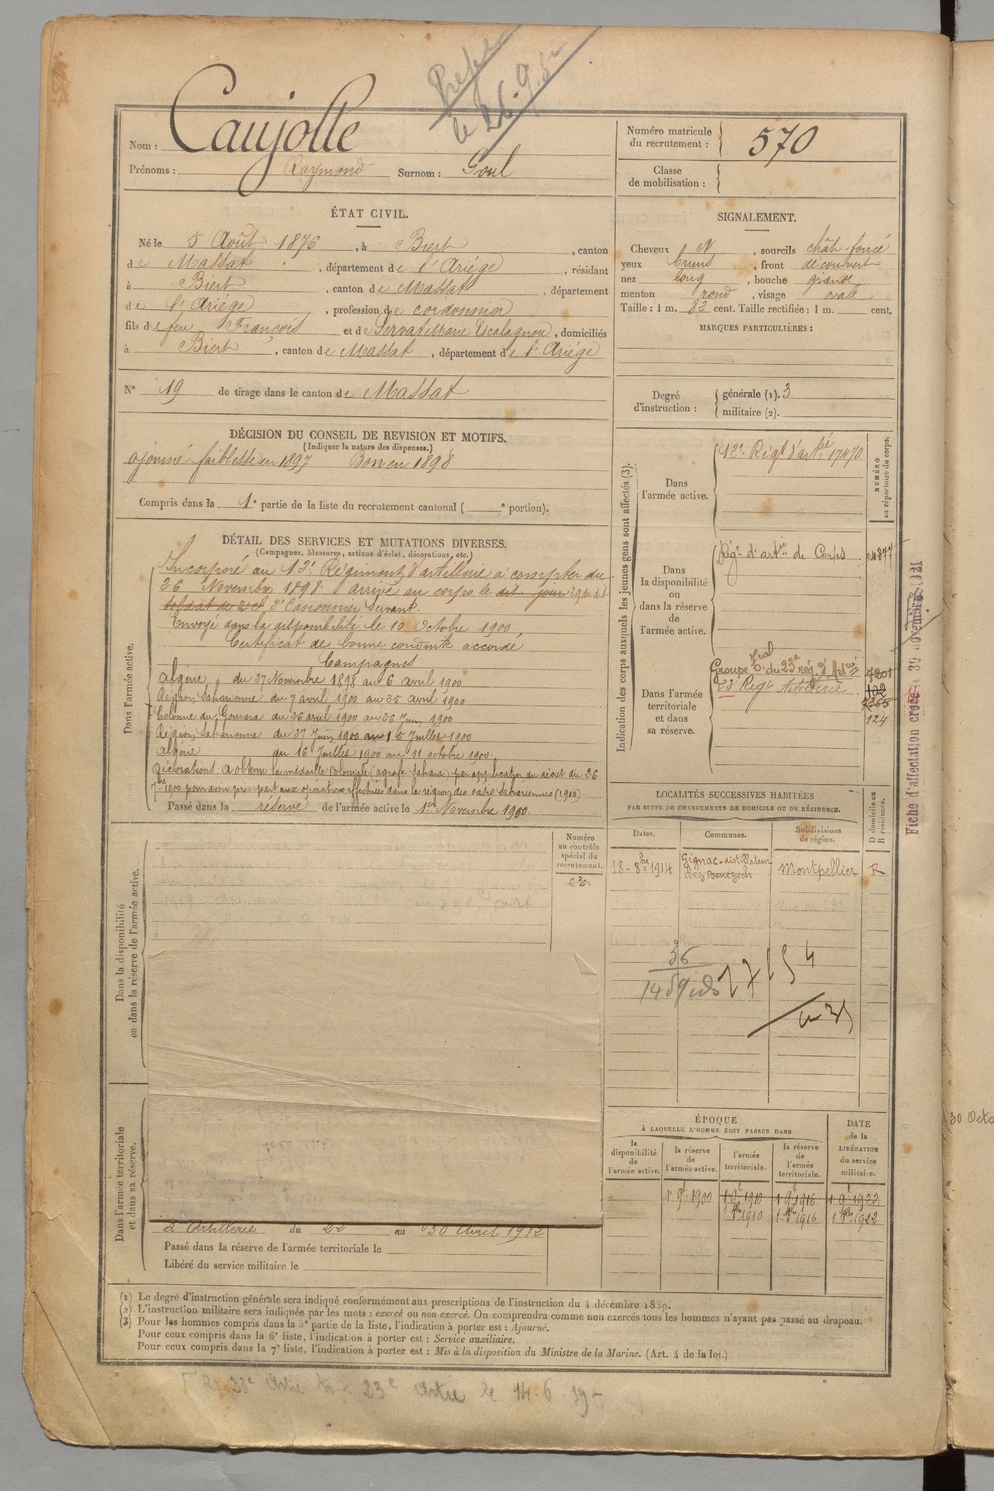 le 26.9.
Nom : Caujolle
Prénoms : Raymond Surnom : Goul
Numéro matricule du recrutement : 570
Classe de mobilisation :
ÉTAT CIVIL.
Né le 5 Août 1876, à Biert, canton
de Massat, département de l'Ariège, résidant
à Biert, canton de Massat, département
de l'Ariège, profession de cordonnier
fils de feu François et de Servat Marie Escalagnou, domiciliés
à Biert, canton de Massat, département de l'Ariège
N° 19 de tirage dans le canton de Massat
SIGNALEMENT.
Cheveux N, sourcils chât-foncé
yeux bruns, front découvert
nez long, bouche grande
menton rond, visage ovale
Taille : 1 m. 82 cent. Taille rectifiée : 1 m. cent.
MARQUES PARTICULIÈRES :
Degré d'instruction : générale (1). 3
militaire (2).
DÉCISION DU CONSEIL DE REVISION ET MOTIFS.
(Indiquer la nature des dispenses.)
ajourné faiblesse en 1897 Bon en 1898
Compris dans la 1e partie de la liste du recrutement cantonal ( e portion).
DÉTAIL DES SERVICES ET MUTATIONS DIVERSES.
(Campagnes, blessures, actions d'éclat, décorations, etc.)
Dans l'armée active.
Incorporé au 12e Régiment d'artillerie à compter du
26 Novembre 1898 arrivé au corps le dit jour
soldat de 2e cl. 2e Canonnier servant.
Envoyé dans la disponibilité le 10 Octobre 1900,
Certificat de bonne conduite accordé,
Campagnes
Algérie du 27 Novembre 1898 au 6 avril 1900
Région Saharienne du 7 avril 1900 au 25 avril 1900
Colonne du Gourara du 26 avril 1900 au 26 Juin 1900
Région Saharienne du 27 Juin 1900 au 15 Juillet 1900
Algérie du 16 Juillet 1900 au 11 octobre 1900.
Décorations. A obtenu la médaille Coloniale (agrafe Sahara) par application du décret du 26
1900 pour avoir pris part aux opérations effectuées dans la région des oasis Sahariennes (1900).
Passé dans la réserve de l'armée active le 1er Novembre 1900.
Indication des corps auxquels les jeunes gens sont affectés (3).
NUMÉRO au répertoire du corps.
Dans l'armée active.
12e Régt d'artie 17470
Dans la disponibilité ou dans la réserve de l'armée active.
Régt d'artie de Corps
Dans l'armée territoriale et dans sa réserve.
Groupe tial du 23e rég. d'Artie 7201
23e Régt Artillerie 102
124
Fiche d'affectation créée le 30 novembre 1921
LOCALITÉS SUCCESSIVES HABITÉES
PAR SUITE DE CHANGEMENTS DE DOMICILE OU DE RÉSIDENCE.
Dates. Communes. Subdivisions de région. D domicile ou R résidence.
18-8bre 1914 Gignac-distillateur chez Benezech Montpellier R
Numéro au contrôle spécial du recrutement.
Dans la disponibilité ou dans la réserve de l'armée active.
Dans l'armée territoriale et dans sa réserve.
d'Artillerie du 22 au 30 Avril 1912
Passé dans la réserve de l'armée territoriale le
Libéré du service militaire le
ÉPOQUE
À LAQUELLE L'HOMME DOIT PASSER DANS
DATE de la LIBÉRATION du service militaire.
la disponibilité de l'armée active. la réserve de l'armée active. l'armée territoriale. la réserve de l'armée territoriale.
1. 9. 1900 1. 9. 1910 1. 9. 1916 1. 9. 1922
1. 1910 1. 1916 1. 1922
(1) Le degré d'instruction générale sera indiqué conformément aux prescriptions de l'instruction du 4 décembre 1889.
(2) L'instruction militaire sera indiquée par les mots : exercé ou non exercé. On comprendra comme non exercés tous les hommes n'ayant pas passé au drapeau.
(3) Pour les hommes compris dans la 5e partie de la liste, l'indication à porter est : Ajourné.
Pour ceux compris dans la 6e liste, l'indication à porter est : Service auxiliaire.
Pour ceux compris dans la 7e liste, l'indication à porter est : Mis à la disposition du Ministre de la Marine. (Art. 4 de la loi.)
23e Artie le 14-6-19
30 Octo